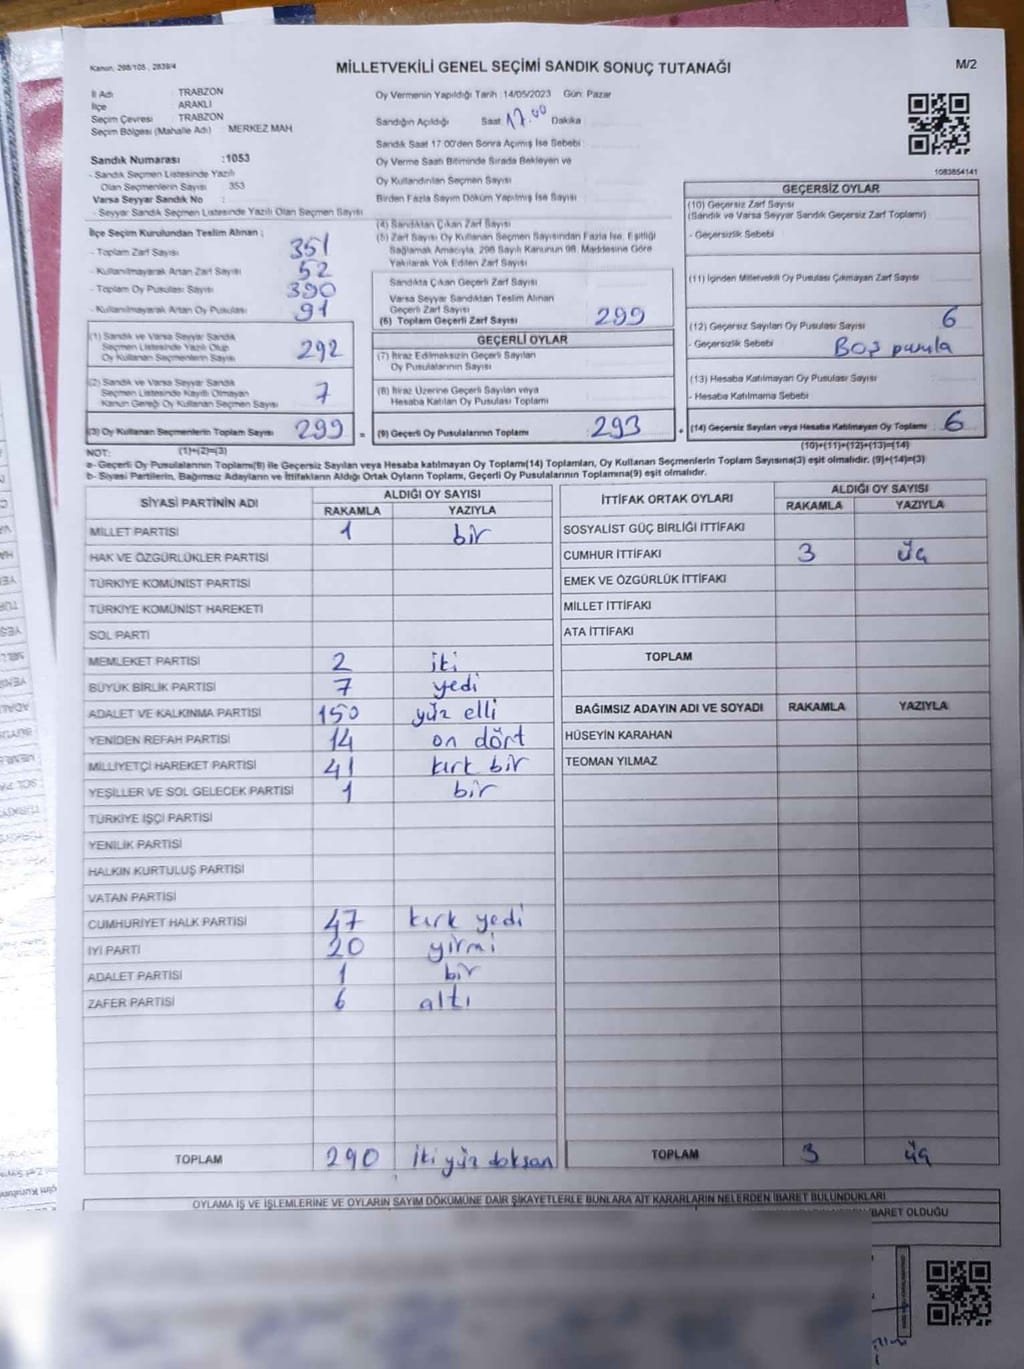 Kanun, 298/105 , 2839/4
MİLLETVEKİLİ GENEL SEÇİMİ SANDIK SONUÇ TUTANAĞI
M/2
İl Adı : TRABZON
İlçe : ARAKLI
Seçim Çevresi : TRABZON
Seçim Bölgesi (Mahalle Adı) MERKEZ MAH
Sandık Numarası :1053
- Sandık Seçmen Listesinde Yazılı
Olan Seçmenlerin Sayısı 353
Varsa Seyyar Sandık No :
- Seyyar Sandık Seçmen Listesinde Yazılı Olan Seçmen Sayısı
İlçe Seçim Kurulundan Teslim Alınan ;
- Toplam Zarf Sayısı 351
- Kullanılmayarak Artan Zarf Sayısı 52
- Toplam Oy Pusulası Sayısı 390
- Kullanılmayarak Artan Oy Pusulası 91
(1) Sandık ve Varsa Seyyar Sandık
Seçmen Listesinde Yazılı Olup
Oy Kullanan Seçmenlerin Sayısı 292
(2) Sandık ve Varsa Seyyar Sandık
Seçmen Listesinde Kayıtlı Olmayan
Kanun Gereği Oy Kullanan Seçmen Sayısı 7
(3) Oy Kullanan Seçmenlerin Toplam Sayısı 299 =
Oy Vermenin Yapıldığı Tarih :14/05/2023 Gün: Pazar
Sandığın Açıldığı Saat 17.00 Dakika
Sandık Saat 17:00'den Sonra Açılmış İse Sebebi
Oy Verme Saati Bitiminde Sırada Bekleyen ve
Oy Kullandırılan Seçmen Sayısı
Birden Fazla Sayım Döküm Yapılmış İse Sayısı
(4) Sandıktan Çıkan Zarf Sayısı
(5) Zarf Sayısı Oy Kullanan Seçmen Sayısından Fazla İse, Eşitliği
Sağlamak Amacıyla, 298 Sayılı Kanunun 98. Maddesine Göre
Yakılarak Yok Edilen Zarf Sayısı
Sandıkta Çıkan Geçerli Zarf Sayısı
Varsa Seyyar Sandıktan Teslim Alınan
Geçerli Zarf Sayısı
(6) Toplam Geçerli Zarf Sayısı 299
GEÇERLİ OYLAR
(7) İtiraz Edilmeksizin Geçerli Sayılan
Oy Pusulalarının Sayısı
(8) İtiraz Üzerine Geçerli Sayılan veya
Hesaba Katılan Oy Pusulası Toplamı
(9) Geçerli Oy Pusulalarının Toplamı 293 +
1083854141
GEÇERSİZ OYLAR
(10) Geçersiz Zarf Sayısı
(Sandık ve Varsa Seyyar Sandık Geçersiz Zarf Toplamı)
- Geçersizlik Sebebi
(11) İçinden Milletvekili Oy Pusulası Çıkmayan Zarf Sayısı
(12) Geçersiz Sayılan Oy Pusulası Sayısı 6
- Geçersizlik Sebebi Boş pusula
(13) Hesaba Katılmayan Oy Pusulası Sayısı
- Hesaba Katılmama Sebebi
(14) Geçersiz Sayılan veya Hesaba Katılmayan Oy Toplamı : 6
NOT: (1)+(2)=(3) (10)+(11)+(12)+(13)=(14)
a- Geçerli Oy Pusulalarının Toplamı(9) ile Geçersiz Sayılan veya Hesaba katılmayan Oy Toplamı(14) Toplamları, Oy Kullanan Seçmenlerin Toplam Sayısına(3) eşit olmalıdır. (9)+(14)=(3)
b- Siyasi Partilerin, Bağımsız Adayların ve İttifakların Aldığı Ortak Oyların Toplamı, Geçerli Oy Pusulalarının Toplamına(9) eşit olmalıdır.
SİYASİ PARTİNİN ADI ALDIĞI OY SAYISI
RAKAMLA YAZIYLA
MİLLET PARTİSİ 1 bir
HAK VE ÖZGÜRLÜKLER PARTİSİ
TÜRKİYE KOMÜNİST PARTİSİ
TÜRKİYE KOMÜNİST HAREKETİ
SOL PARTİ
MEMLEKET PARTİSİ 2 iki
BÜYÜK BİRLİK PARTİSİ 7 yedi
ADALET VE KALKINMA PARTİSİ 150 yüz elli
YENİDEN REFAH PARTİSİ 14 on dört
MİLLİYETÇİ HAREKET PARTİSİ 41 kırk bir
YEŞİLLER VE SOL GELECEK PARTİSİ 1 bir
TÜRKİYE İŞÇİ PARTİSİ
YENİLİK PARTİSİ
HALKIN KURTULUŞ PARTİSİ
VATAN PARTİSİ
CUMHURİYET HALK PARTİSİ 47 kırk yedi
İYİ PARTİ 20 yirmi
ADALET PARTİSİ 1 bir
ZAFER PARTİSİ 6 altı
TOPLAM 290 iki yüz doksan
İTTİFAK ORTAK OYLARI ALDIĞI OY SAYISI
RAKAMLA YAZIYLA
SOSYALİST GÜÇ BİRLİĞİ İTTİFAKI
CUMHUR İTTİFAKI 3 üç
EMEK VE ÖZGÜRLÜK İTTİFAKI
MİLLET İTTİFAKI
ATA İTTİFAKI
TOPLAM
BAĞIMSIZ ADAYIN ADI VE SOYADI RAKAMLA YAZIYLA
HÜSEYİN KARAHAN
TEOMAN YILMAZ
TOPLAM 3 üç
OYLAMA İŞ VE İŞLEMLERİNE VE OYLARIN SAYIM DÖKÜMÜNE DAİR ŞİKAYETLERLE BUNLARA AİT KARARLARIN NELERDEN İBARET BULUNDUKLARI
İBARET OLDUĞU